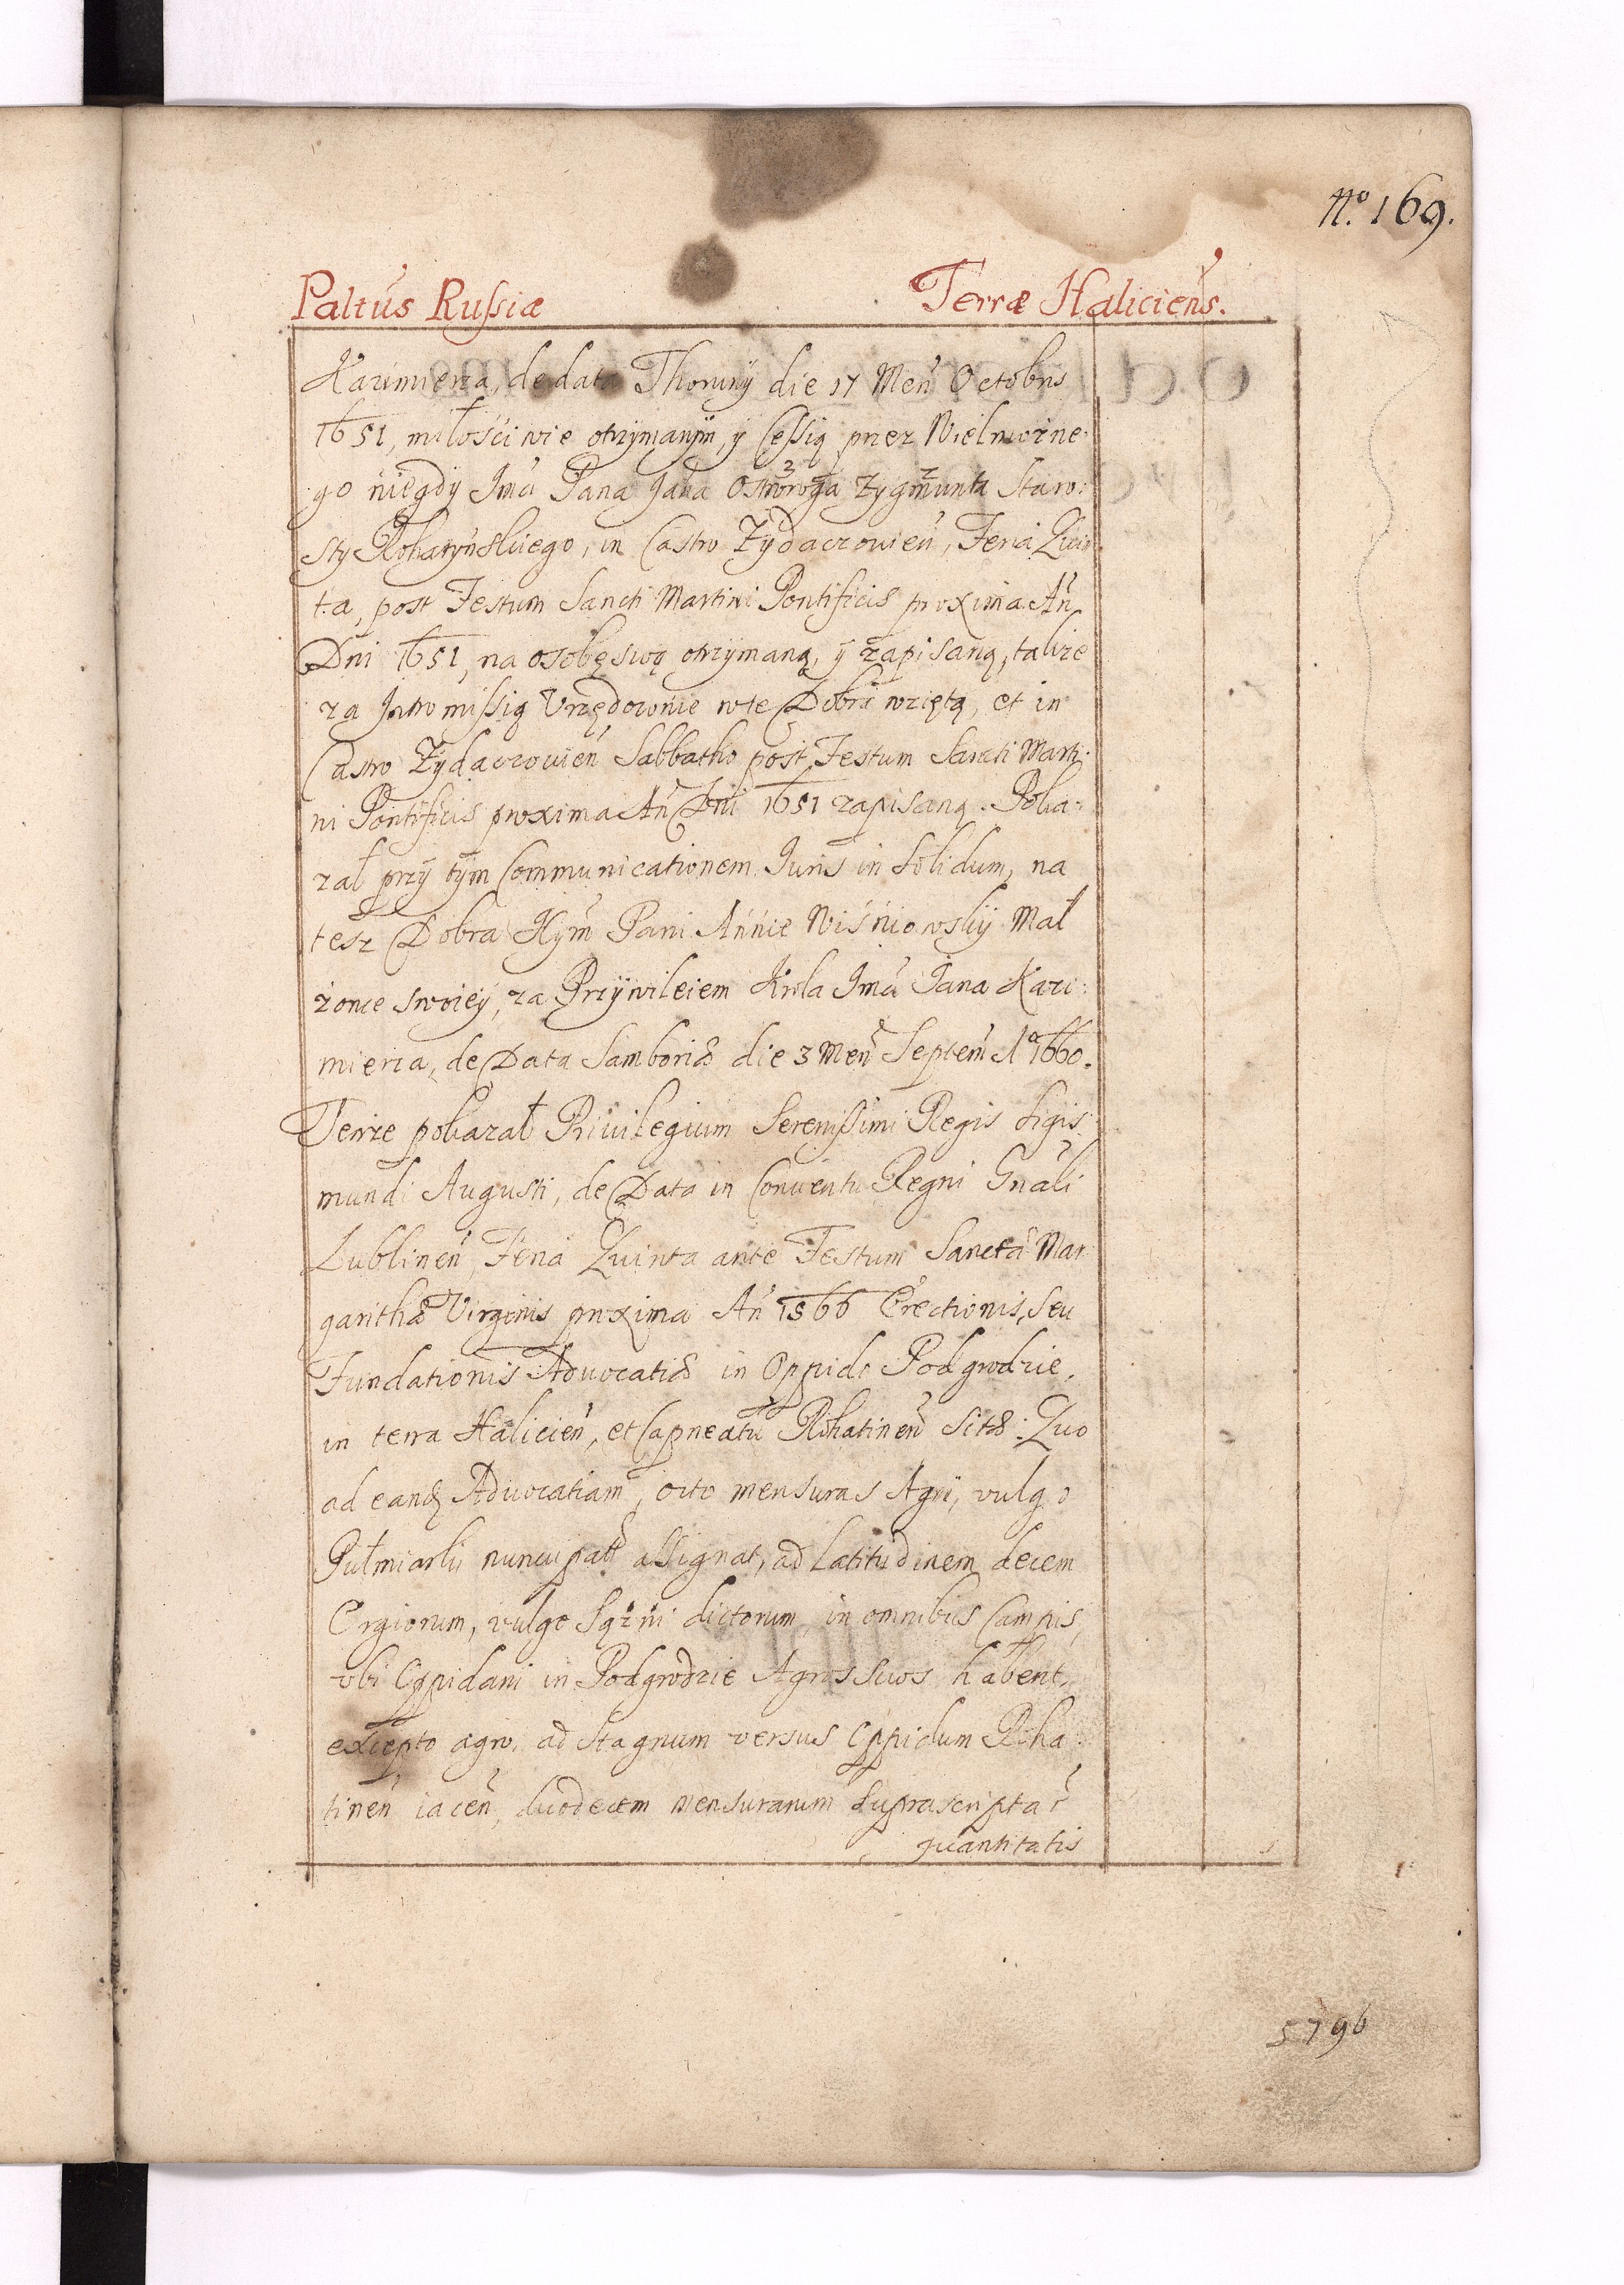 No. 169.
Paltus Russiæ Terræ Haliciens.
Kazimierza, de data Thoruny die 17 Men Octobris
1651, miłościwie otrzymanym, y Cessią przez Wielmożne-
go niegdy Imci Pana Jana Ostroroga Zygmunta Staro:
sty Rohatynskiego, in Castro Zydaczovien, Feria Quin
ta, post Festum Sancti Martini Pontificis proxima An
Dni 1651, na osobę swą otrzymaną, y zapisaną, takze
za Intromissią Vrzędownie w te Dobra wziętą, et in
Castro Zydaczovien Sabbatho post Festum Sancti Marti-
ni Pontificis proxima An Dni 1651 zapisaną. Poka:
zał przy tym Communicationem Juris in solidum, na
tesz Dobra Jeym Pani Annie Wiśniowsky Mał
żonce swoiey, za Przywileiem Krola Imci Jana Kazi:
mierza, de Data Samboriæ die 3 Men Septem Ao 1660.
Tenze pokazał Privilegium Serenissimi Regis Sigis:
mundi Augusti, de Data in Conventu Regni Gnali
Lublinen, Feria Quinta ante Festum Sanctæ Mar
garithæ Virginis proxima An 1566 Erectionis, seu
Fundationis Advocatiæ in Oppido Podgrodzie,
in terra Halicien, et Capneatu Rohatinen sitæ: Quo
ad eandem Advocatiam, octo mensuras Agri, vulgo
Pułmiarki nuncupatæ assignat, ad Latitudinem decem
Ergiorum, vulgo Sązni dictorum, in omnibus Campis,
vbi Oppidani in Podgrodzie Agros suos habent,
excepto agro, ad Stagnum versus Oppidum Roha
tinen iacen, duodecem mensurarum suprascripta
quantitatis
5796